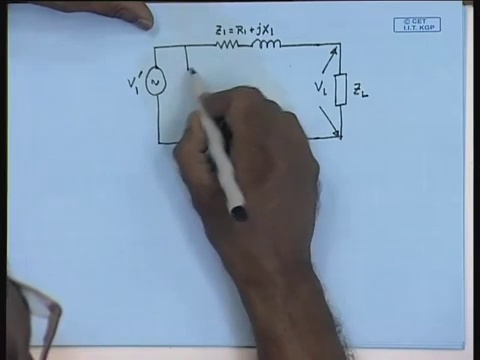 © CET
I.I.T. KGP
Z1 = R1 + jX1
V1'
VL
ZL